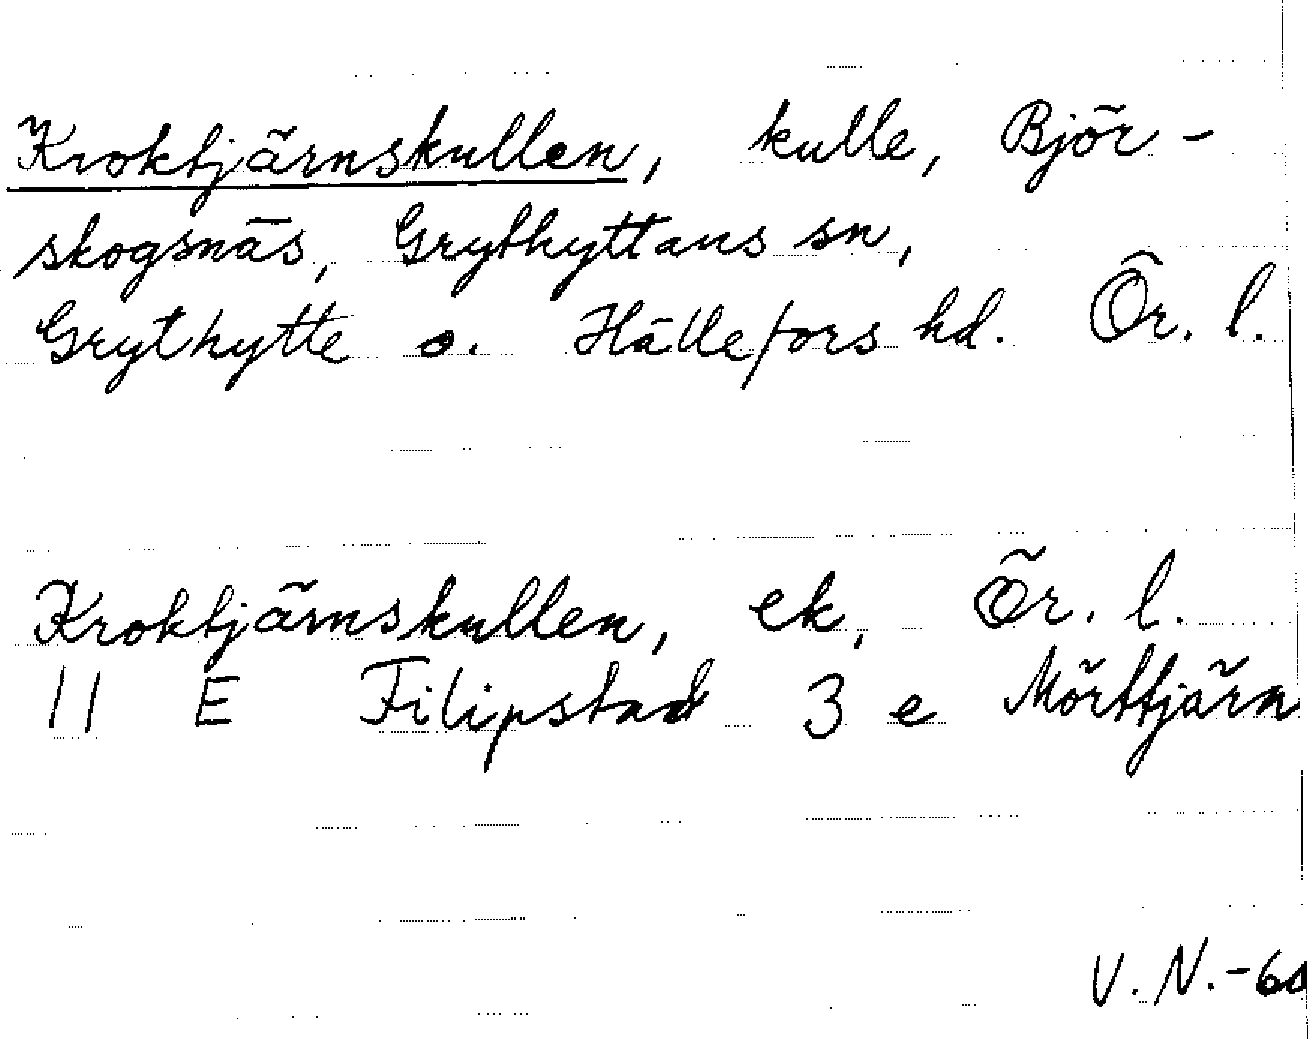 Kroktjärnskullen, kulle, Björ-
skogsnäs, Grythyttans sn,
Grythytte o. Hällefors hd. Ör. l.
Kroktjärnskullen, ek, Ör. l.
11 E Filipstad 3 e Mörttjärn
V. N. -60